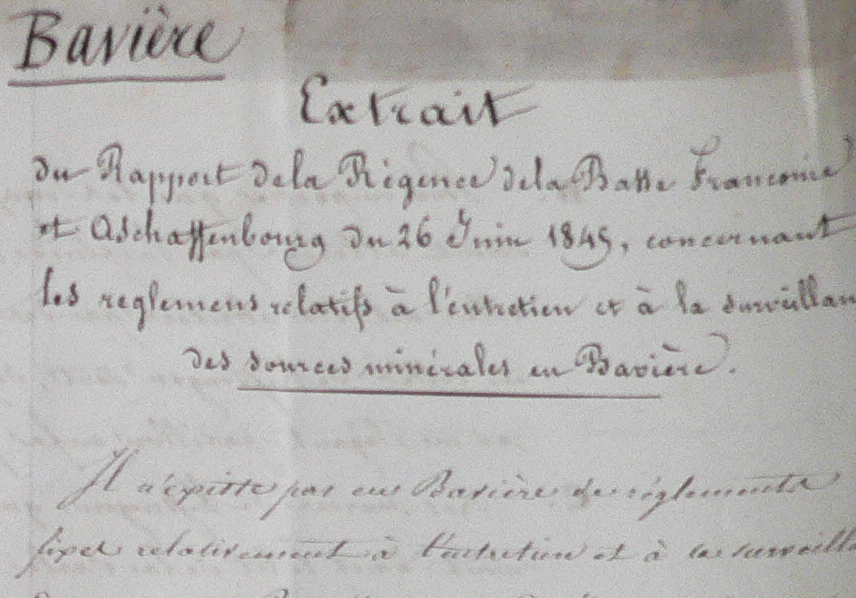 Bavière
Extrait
du Rapport de la Régence de la Basse Franconie
et Aschaffenbourg du 26 Juin 1845, concernant
les reglemens relatifs à l'entretien et à la surveillan
des sources minérales en Bavière.
Il n'existe pas en Bavière de réglements
fixes relativement à l'entretien et à la surveilla